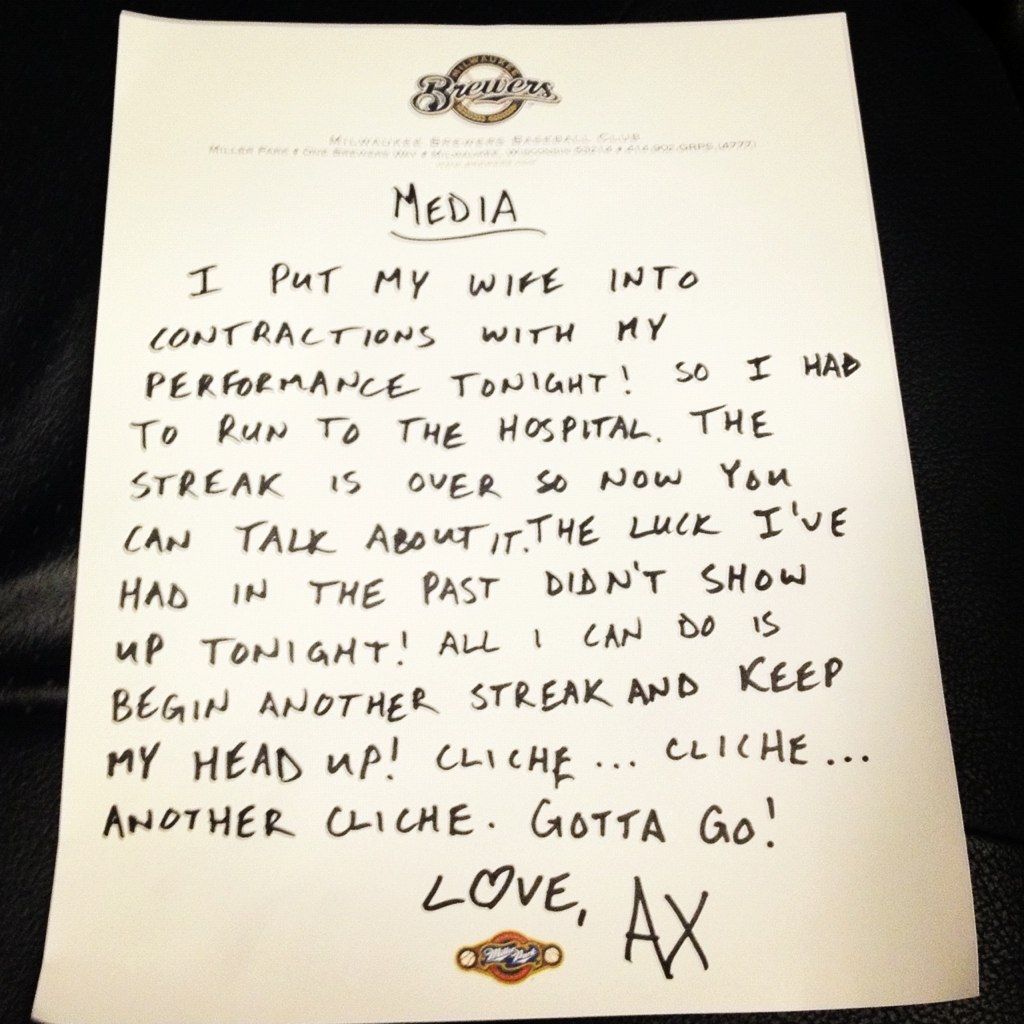 MILWAUKEE
Brewers
MILWAUKEE BREWERS BASEBALL CLUB
MILLER PARK • ONE BREWERS WAY • MILWAUKEE, WISCONSIN 53214 • 414.902.GRPS (4777)
MEDIA
I PUT MY WIFE INTO
CONTRACTIONS WITH MY
PERFORMANCE TONIGHT! SO I HAD
TO RUN TO THE HOSPITAL. THE
STREAK IS OVER SO NOW YOU
CAN TALK ABOUT IT. THE LUCK I'VE
HAD IN THE PAST DIDN'T SHOW
UP TONIGHT! ALL I CAN DO IS
BEGIN ANOTHER STREAK AND KEEP
MY HEAD UP! CLICHE... CLICHE...
ANOTHER CLICHE. GOTTA GO!
LOVE, AX